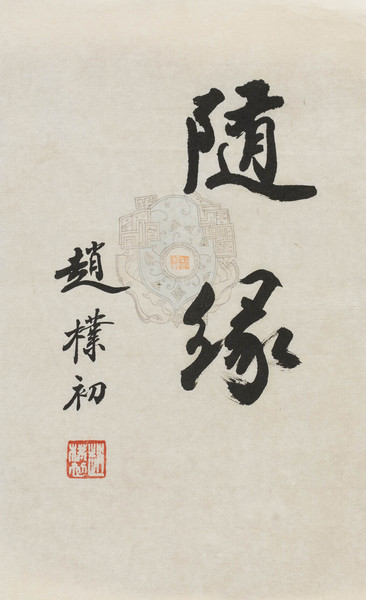 随缘
趙樸初